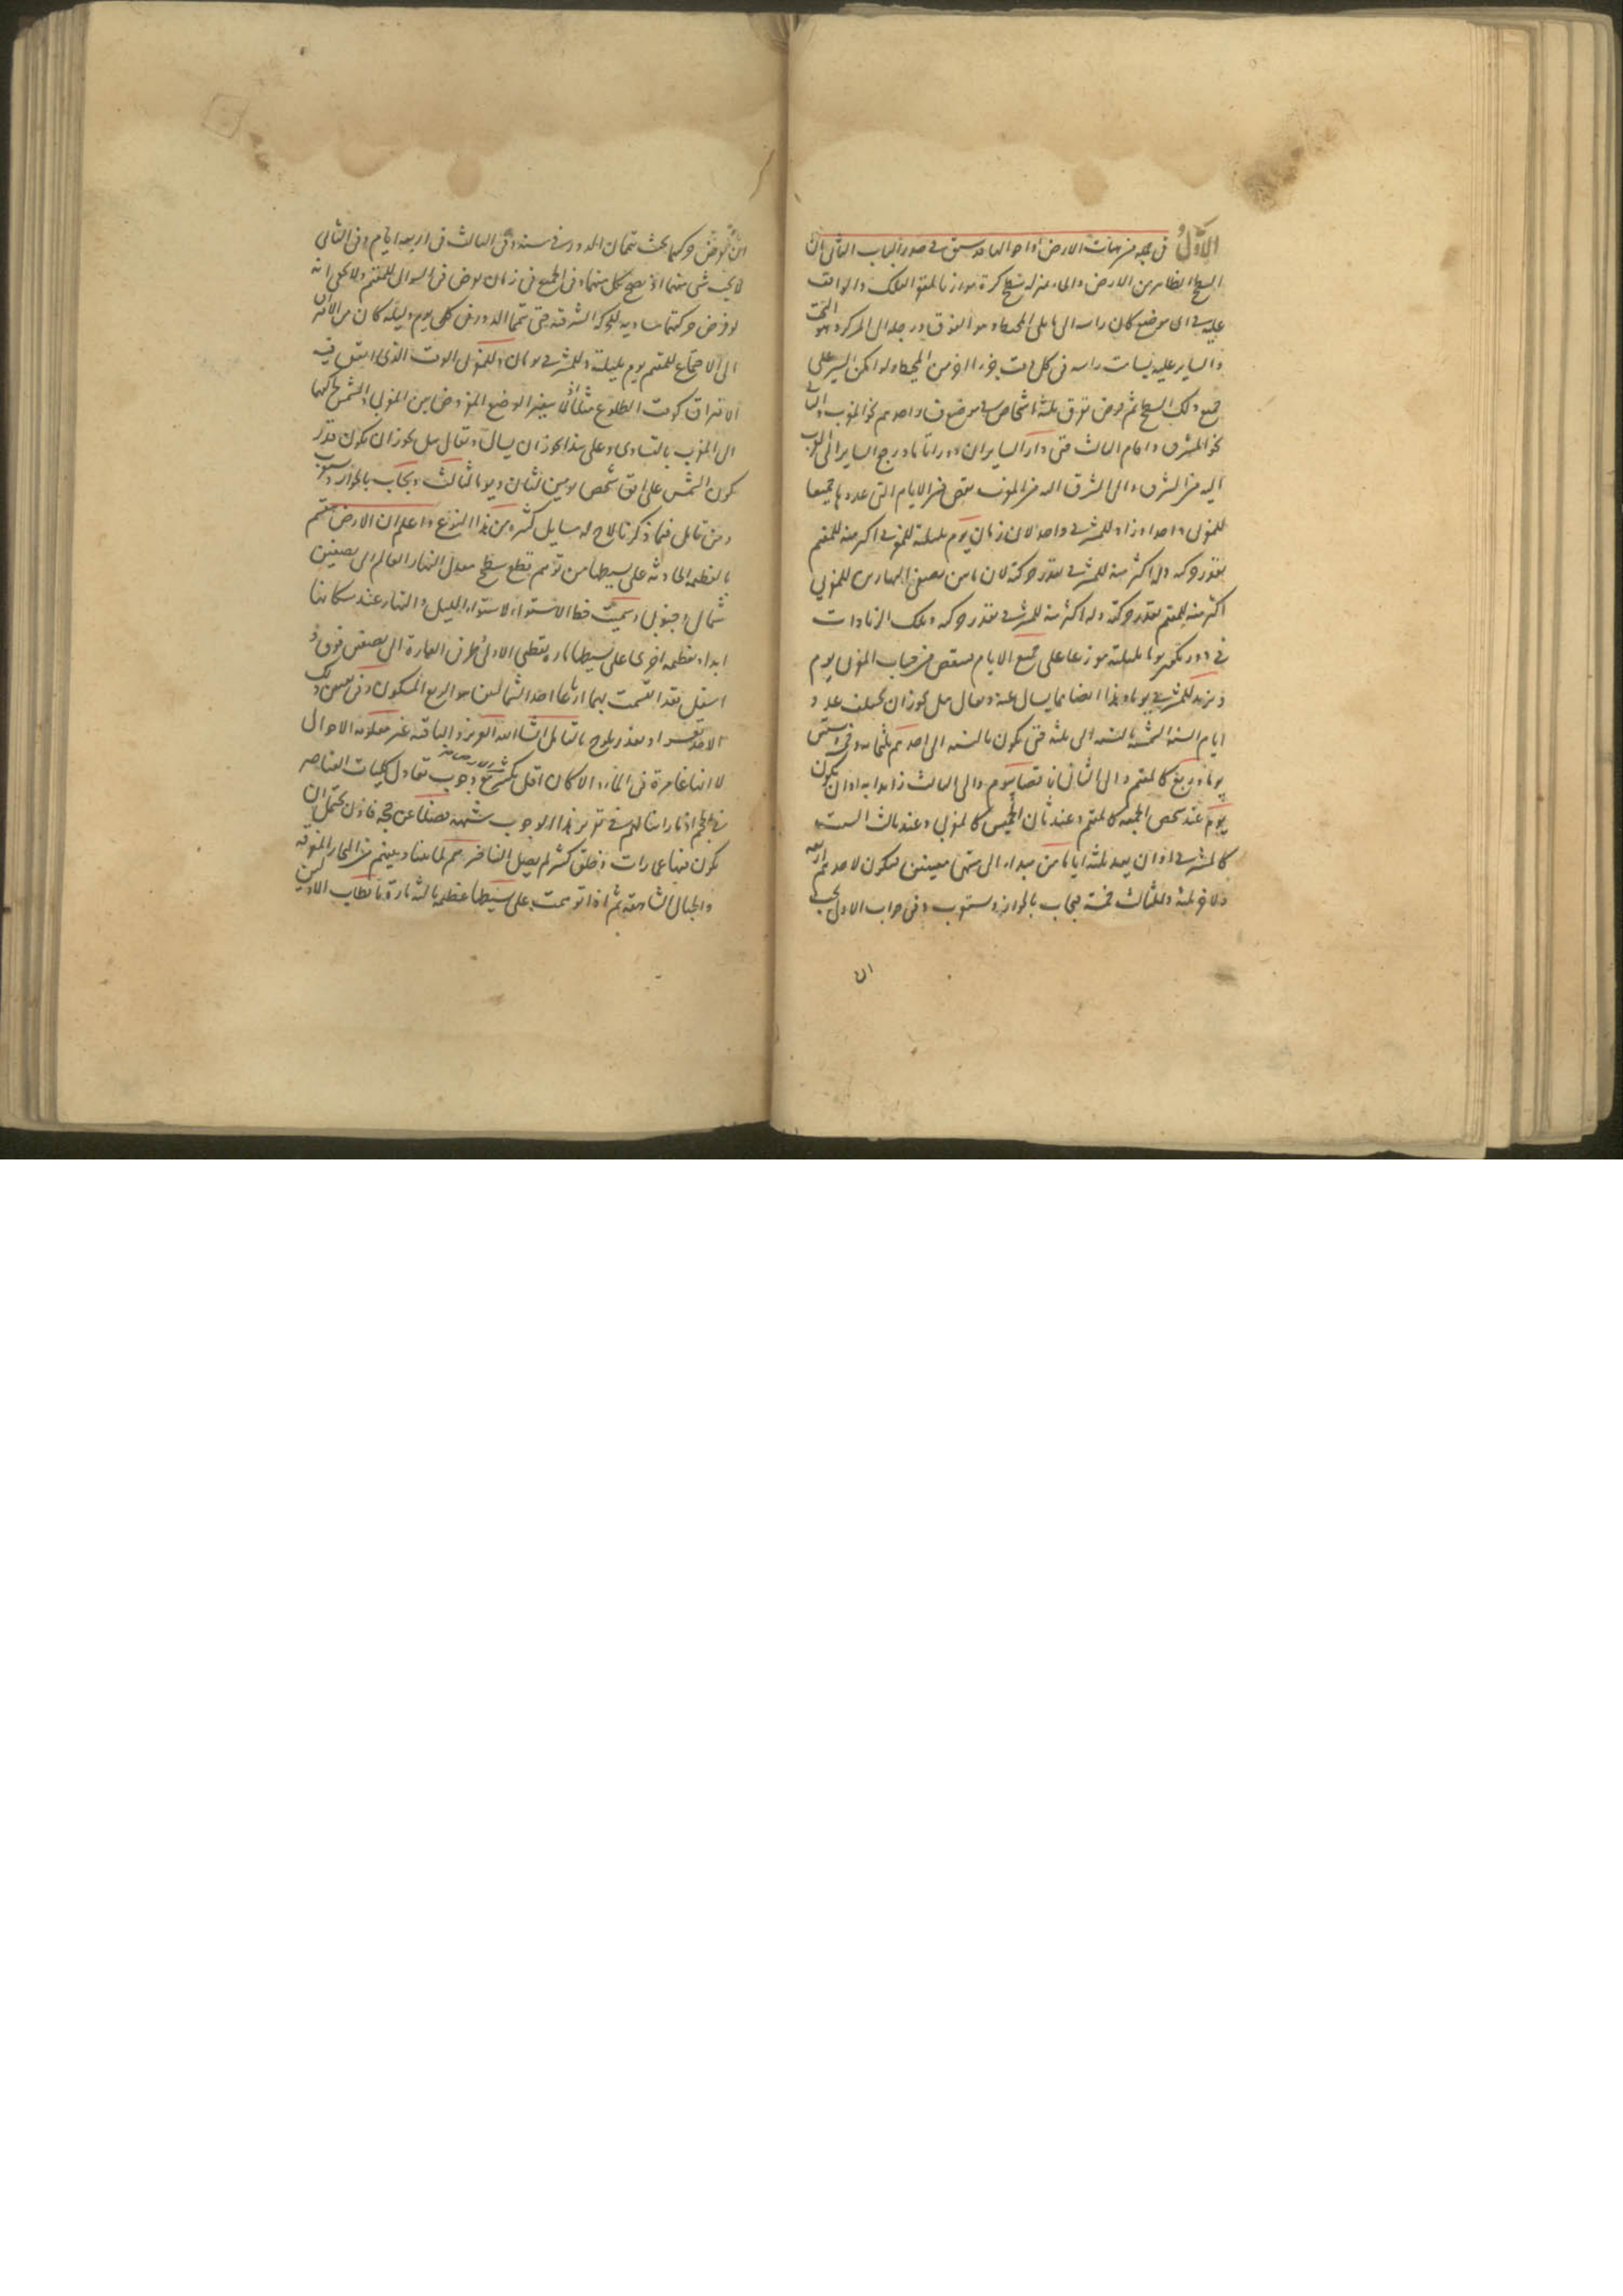 الاول في جمل من هيئات الارض واحوالها قد سبق في صدر الباب الثاني ان
السطح الظاهر من الارض والماء بمنزلة سطح كرة موازيا لمقعر الفلك والواقف
عليه في اي موضع كان راسه الى ما يلي المحيط وهو الفوق ورجله الى المركز وهو التحت
والساير عليه يسامت راسه في كل وقت جزءا آخر من المحيط ولو امكن السير على
جميع ذلك السطح ثم فرض تفرق ثلثة اشخاص في موضع فسار احدهم نحو المغرب والثاني
نحو المشرق واقام الثالث حتى دار السايران دورا تاما ورجع الساير الى الغرب
اليه من الشرق والى الشرق اليه من المغرب نقص من الايام التي عدوها جميعا
للمغربي واحد وزاد للمشرقي واحد لان زمان يوم بليلته للمغربي اكثر منه للمقيم
بقدر حركته وله اكثر منه للمشرقي بقدر حركته لان ما بين نصفي النهارين للمغربي
اكثر منه للمقيم بقدر حركته وله اكثر منه للمشرقي بقدر حركته وتلك الزيادات
في دور تكمل يوما بليلته موزعا على جميع الايام فينقص من حساب المغربي يوم
ويزيد للمشرقي يوما وهذا ايضا مما يسال عنه ويقال هل يجوز ان يختلف عدد
ايام السنة الشمسية بالنسبة الى ثلثة حتى يكون بالنسبة الى احدهم ثلثمائة وخمسة وستين
يوما وربع كالمقيم والى الثاني ناقصا بيوم والى الثالث زايدا به او ان يكون
يوم عند شخص الجمعة كالمقيم وعند ثان الخميس كالمغربي وعند ثالث السبت
كالمشرقي او ان يعد ثلثة اياما من مبداء الى منتهى معينين فيكون لاحدهم اربعة
ولآخر ثلثة وللثالث خمسة فيجاب بالجواز ويستغرب وفي جواب الاول يجب
ان
ان تفرض حركتهما بحيث يتمان الدور في سنة وفي الثالث في اربعة ايام وفي الثاني
لا يجب شي منهما اذ يصح كل منهما وفي الجميع في زمان يفرض في السوال للمقيم ولا يخفى انه
لو فرض حركتهما مساوية للحركة الشرقية حتى تتما الدور في كل يوم وليلة كان من الافتراق
الى الاجتماع للمقيم يوم بليلته وللمشرقي يومان وللمغربي الوقت الذي اتفق فيه
الافتراق كوقت الطلوع مثلا اذ لا يتغير الوضع المفروض بين المغربي والشمس لحركتهما
الى المغرب بالتساوي وعلى هذا يجوز ان يسال ويقال هل يجوز ان يكون قدر
يكون الشمس على افق شخص يومين لثان ويوما لثالث ويجاب بالجواز ويستغرب
ومن تامل فيما ذكرنا لاح له مسايل كثيرة من هذا النوع واعلم ان الارض تنقسم
بالعظيمة الحادثة على بسيطها من توهم قطع سطح معدل النهار العالم الى نصفين
شمالي وجنوبي وسميت خط الاستواء لاستواء الليل والنهار عند سكانها
ابدا وبعظيمة اخرى على بسيطها مارة بقطبي الاولى وطرفي العمارة الى نصفين فوق و
اسفل فقد انقسمت بهما ارباعا احد الشماليين هو الربع المسكون وفي تعيين ذلك
الاحد تعسر او تعذر يلوح بالتامل ان شاء الله العزيز والباقية غير معلومة الاحوال
لا انها غامرة في الماء والا كان اقل بكثير من الارض مع وجوب تعادل كليات العناصر
في الحجم اذ ما راينا لهم في تقرير هذا الوجوب شبهة فضلا عن حجة فاذن يحتمل ان
يكون فيها عمارات وخلق كثير لم يصل الينا خبرهم لما بيننا وبينهم من البحار المغرقة
والجبال الشاهقة ثم اذا توهمت على بسيطها عظيمة ثالثة مارة باقطاب الاوليين